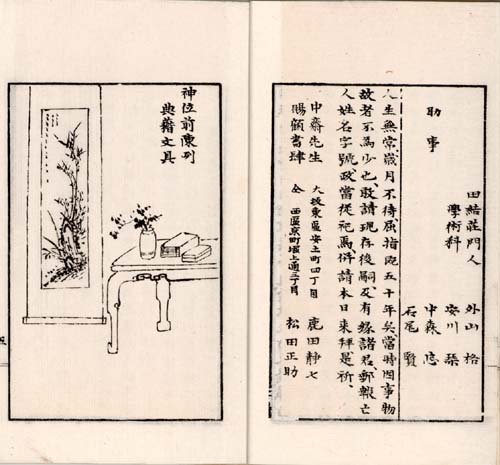 田結莊門人 外山 格
學術科 安川
助事 中森
石尾 賢
人生無常歳月不待屈指既五十年矣、當時因事物
故者不為少也、敢請現存後嗣及有縁諸君、郵報亡
人姓名字號、政當從祀焉、併請本日来拜是祈、
中齋先生 大坂東區安土町四丁目 鹿田静七
賜顧書肆 仝 西區京町堀上通三丁目 松田正助
神位前陳列
典籍文具